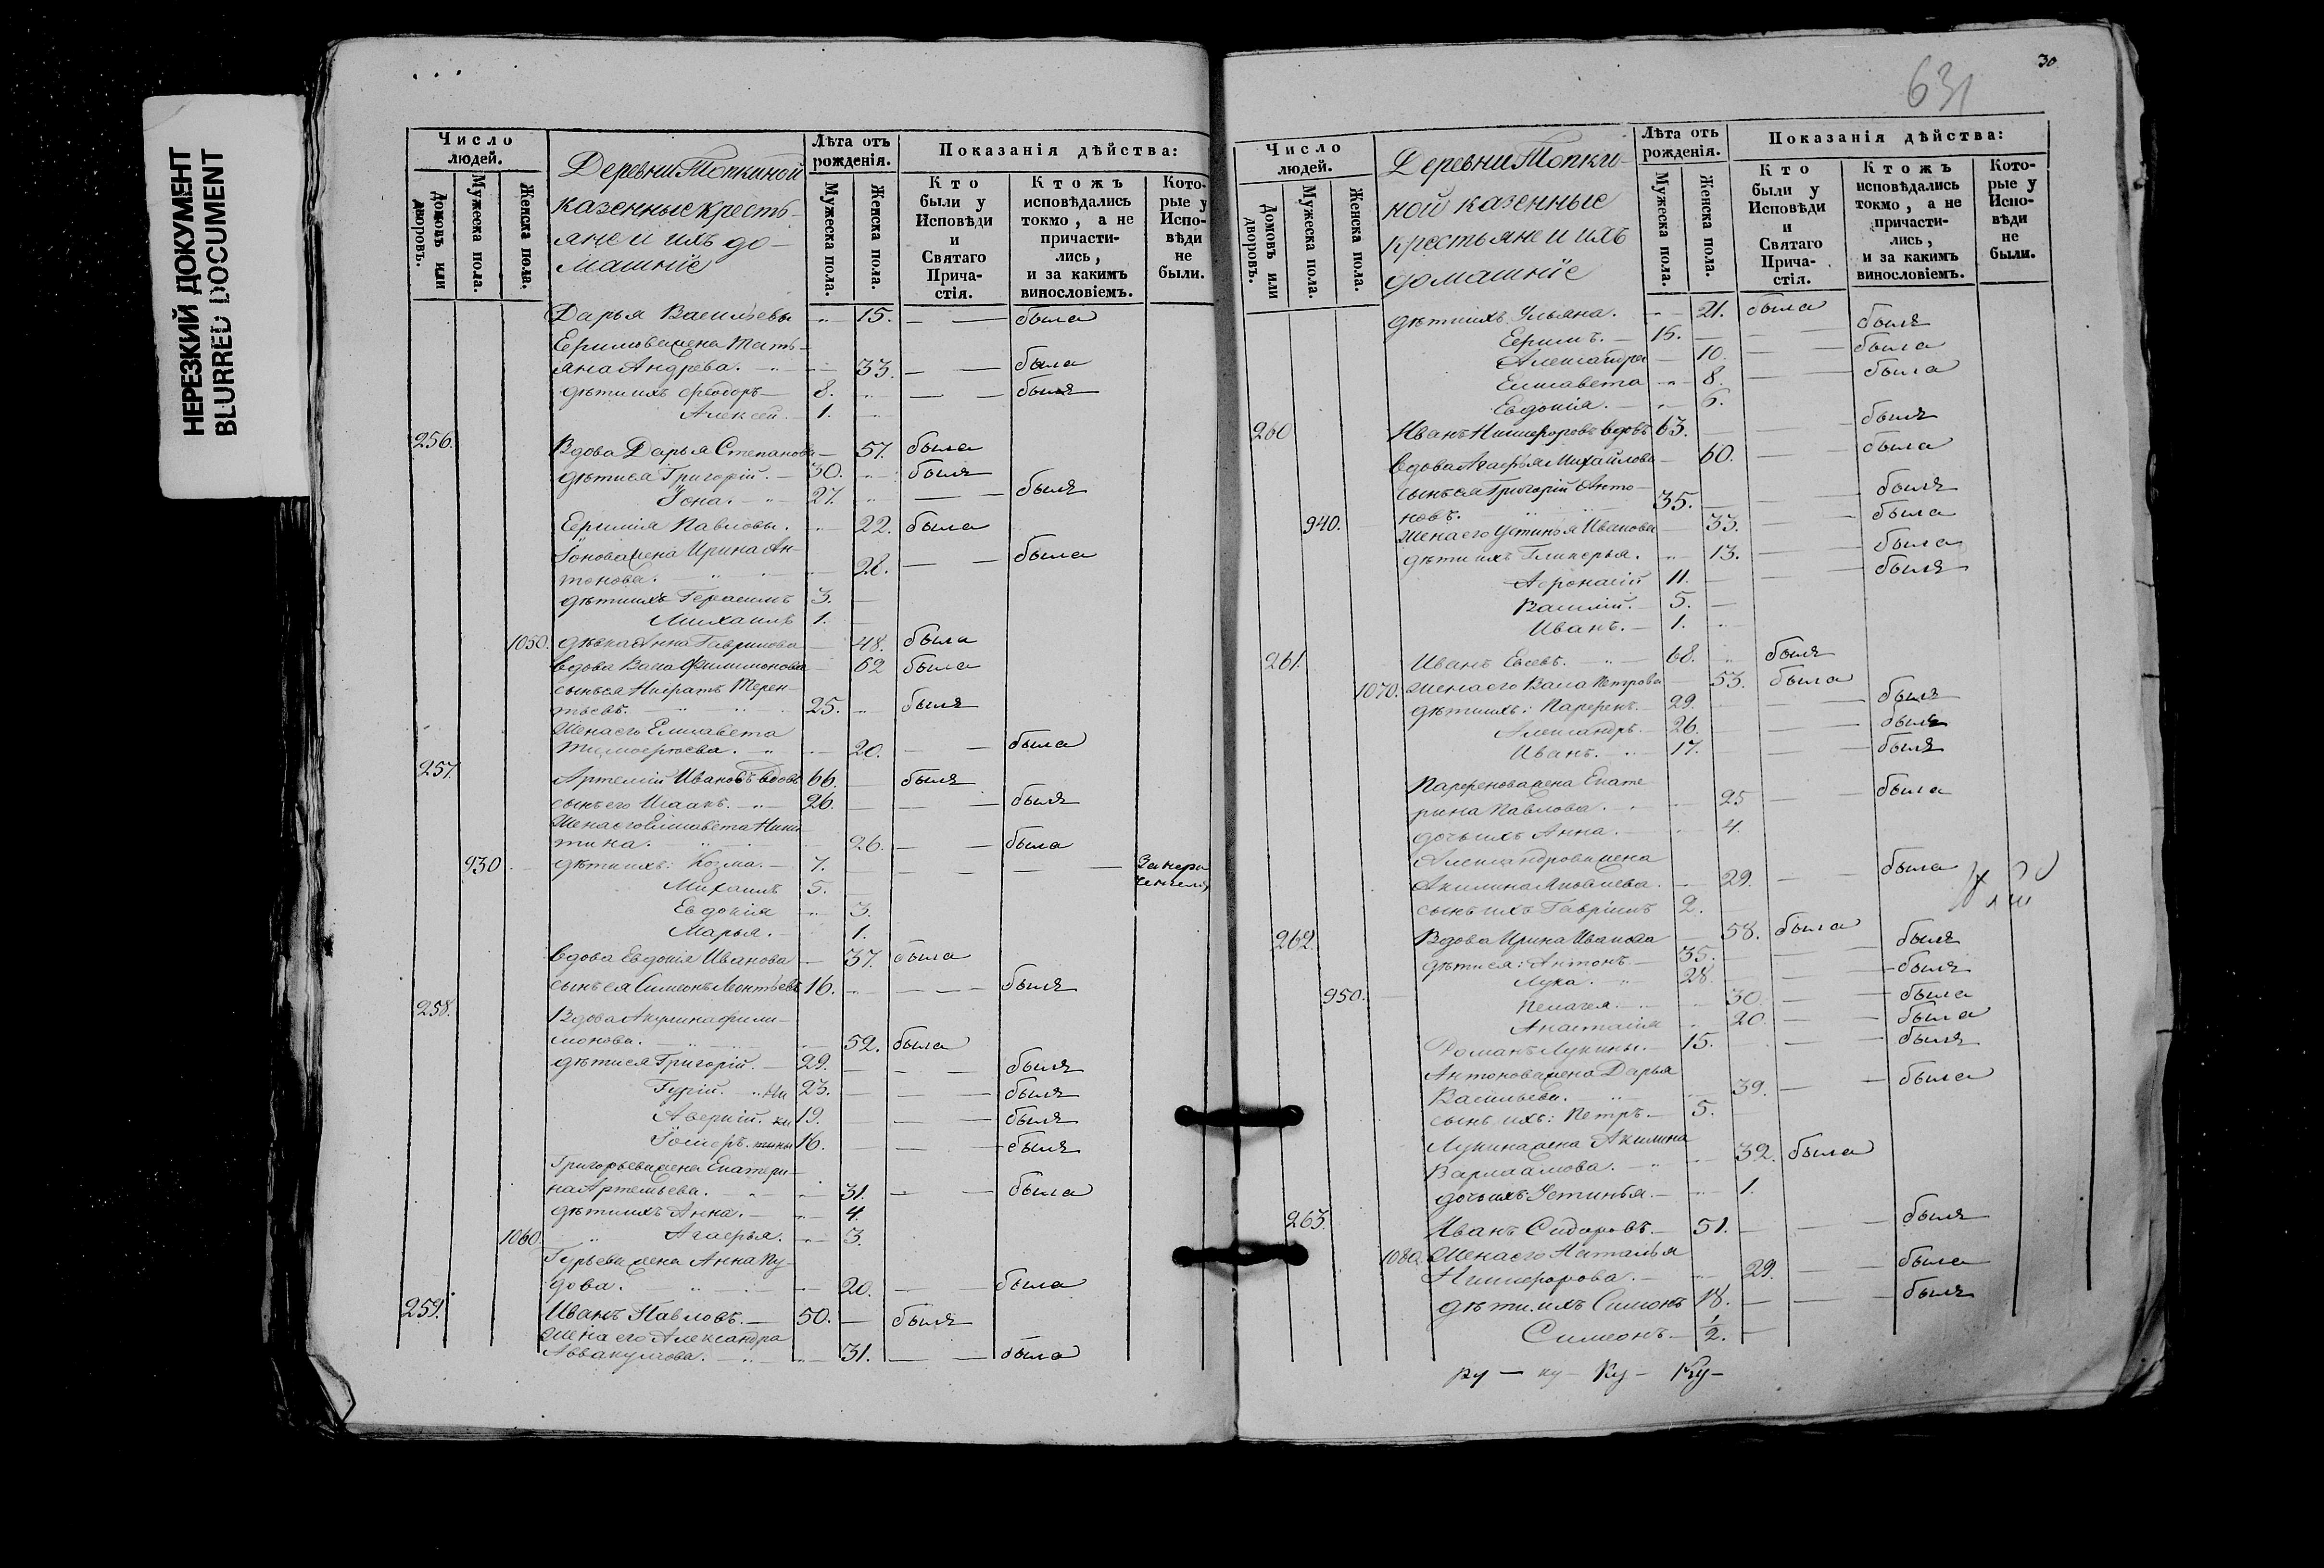 НЕРЕЗКИЙ ДОКУМЕНТ
BLURRED DOCUMENT
Число людей.
Домовъ или дворовъ.
Мужеска пола.
Женска пола.
Деревни Топкиной
казенные кресть-
яне и ихъ до-
машніе
Лѣта отъ рожденія.
Мужеска пола.
Женска пола.
Показанія дѣйства:
Кто были у Исповѣди и Святаго Прича-стія.
Ктожъ исповѣдались токмо, а не причасти-лись, и за какимъ винословіемъ.
Кото-рые у Испо-вѣди не были.
Дарья Васильевы 15. была
Ефимова жена Тать-
яна Андрѣева. 33. была
дѣти ихъ Ѳеодоръ 8. былъ
Алексѣй 1.
256. Вдова Дарья Степанова 57. была
дѣти ея Григорій. 30. былъ
Іона. 27. былъ
Павловы. 22. была
Іонова жена Ирина Ан-
тонова. 28. была
дѣти ихъ Герасимъ 3.
Михаилъ 1.
1050. дѣвка Анна Гаврилова 48. была
вдова Васа Филимонова 62 была
сынъ ея Терен-
тьевъ. 25. былъ
Жена его Елисавета
Тимоѳеева. 20. была
257. Артемій Ивановъ вдовъ 66. былъ
сынъ его Исаакъ. 26. былъ
Жена его Елисавета Ники
тина. 26. была
930 дѣти ихъ: Козма. 7.
Михаилъ 5.
Евдокія 3.
Марья. 1.
вдова Евдокія Иванова 37. была
сынъ ея Симеонъ Леонтьевъ 16. былъ
258. Вдова Акулина Фили-
монова. 52. была
дѣти ея Григорій. 29. былъ
Гурій. 23. былъ
Аверкій. 19. былъ
Іосифъ. 16. былъ
Григорьева жена Екатери-
на Артемьева. 31. была
дѣти ихъ Анна. 4.
1060. Агафья. 3.
Гурьева жена Анна Ку-
дова. 20. была
259. Иванъ Павловъ. 50. былъ
Жена его Александра
Аввакумова. 31. была
30
631
Число людей.
Домовъ или дворовъ.
Мужеска пола.
Женска пола.
Деревни Топки-
ной казенные
крестьяне и ихъ
домашніе
Лѣта отъ рожденія.
Мужеска пола.
Женска пола.
Показанія дѣйства:
Кто были у Исповѣди и Святаго Прича-стія.
Ктожъ исповѣдались токмо, а не причасти-лись, и за какимъ винословіемъ.
Кото-рые у Испо-вѣди не были.
дѣти ихъ Ульяна. 21. была
Ефимъ. 15. былъ
Александра 10. была
Елисавета 8. была
Евдокія. 6.
260 Иванъ Никифоровъ вдовъ 63. былъ
вдова Агафья Михайлова 60. была
сынъ ея Григорій Анто-
новъ. 35. былъ
940. Жена его Устинья Иванова 33. была
дѣти ихъ Гликерья. 13. была
Аѳонасій 11. былъ
Василій. 5.
Иванъ. 1.
261. Иванъ Евсевъ. 68. былъ
1070. Жена его Васа Петрова 53. была
дѣти ихъ: Парѳенъ. 29. былъ
Александръ. 26. былъ
Иванъ. 17. былъ
Парѳенова жена Екате-
рина Павлова. 25 была
дочь ихъ Анна. 4.
Александрова жена
Акилина Яковлева. 29. была
сынъ ихъ Гавріилъ 2.
262. Вдова Ирина Иванова 58. была
дѣти ея: Антонъ. 35. былъ
Лука. 28 былъ
950. Пелагея. 30. была
Анастасія 20. была
Романъ Лукины. 15. былъ
Антонова жена Дарья
Васильева. 39. была
сынъ ихъ: Петръ. 5.
Лукина жена Акилина
Варлаамова. 32. была
дочь ихъ Устинья. 1.
263. Иванъ Сидоровъ. 51. былъ
1080. Жена его Наталья
Никифорова. 29. была
дѣти ихъ Симонъ 18. былъ
Симеонъ 1/2.
ку — ку — Ку — Ку —